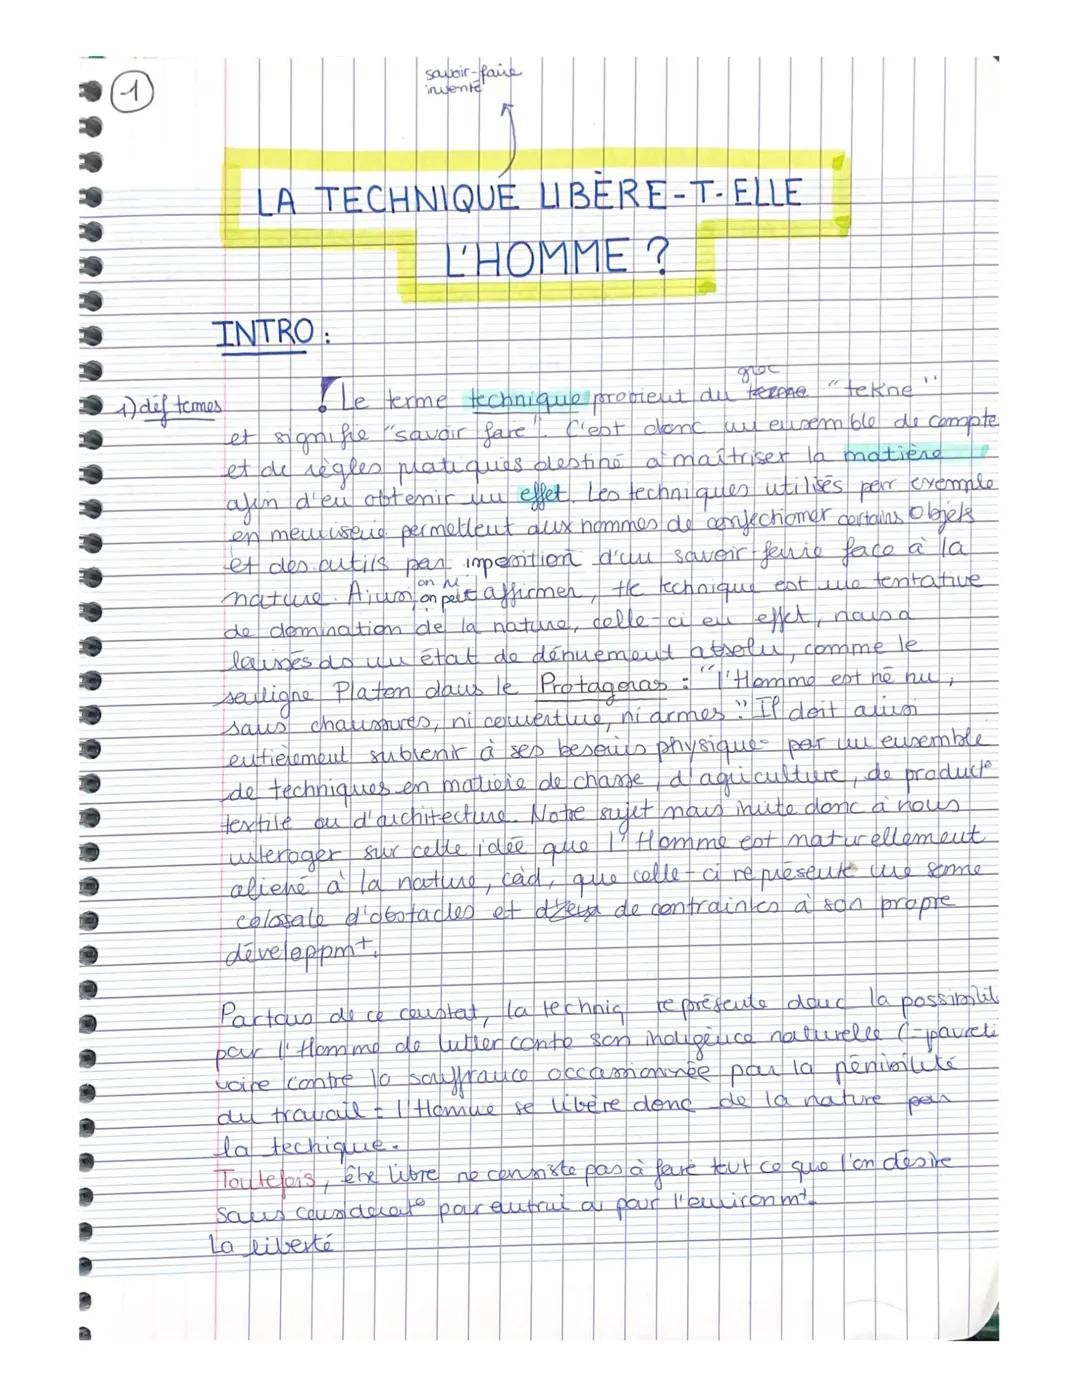 1
savoir-faire
inventé
LA TECHNIQUE LIBÈRE-T-ELLE
L'HOMME ?
INTRO :
1) déf termes
grec
Le terme technique provient du "tekne"
et signifie "savoir faire". C'est donc un ensemble de compte
et de règles pratiques destiné à maîtriser la matière
afin d'en obtenir un effet. Les techniques utilisés par exemple
en menuiserie permettent aux hommes de confectionner certains objets
et des outils par imposition d'un savoir-faire face à la
on ne
nature. Ainsi, on peut affirmer, tte technique est une tentative
de domination de la nature, celle-ci en effet, nous a
laissés ds un état de dénuement absolu, comme le
souligne Platon dans le Protagoras : "l'Homme est né nu,
sans chaussures, ni couverture, ni armes". Il doit ainsi
entièrement subvenir à ses besoins physiques par un ensemble
de techniques en matière de chasse, d'agriculture, de product°
textile ou d'architecture. Notre sujet nous invite donc à nous
interoger sur cette idée que l'Homme est naturellement
aliéné à la nature, càd, que celle-ci représente une somme
colossale d'obstacles et de contraintes à son propre
développmt.
Partons de ce constat, la techniq représente donc la possibilit
par l'Homme de lutter contre son indigence naturelle (=pauvreté
voire contre la souffrance occasionnée par la pénibilité
du travail = l'Homme se libère donc de la nature par
la techique.
Toutefois, être libre ne consiste pas à faire tout ce que l'on désire
sans considérat° par autrui ou pour l'environmt.
La liberté